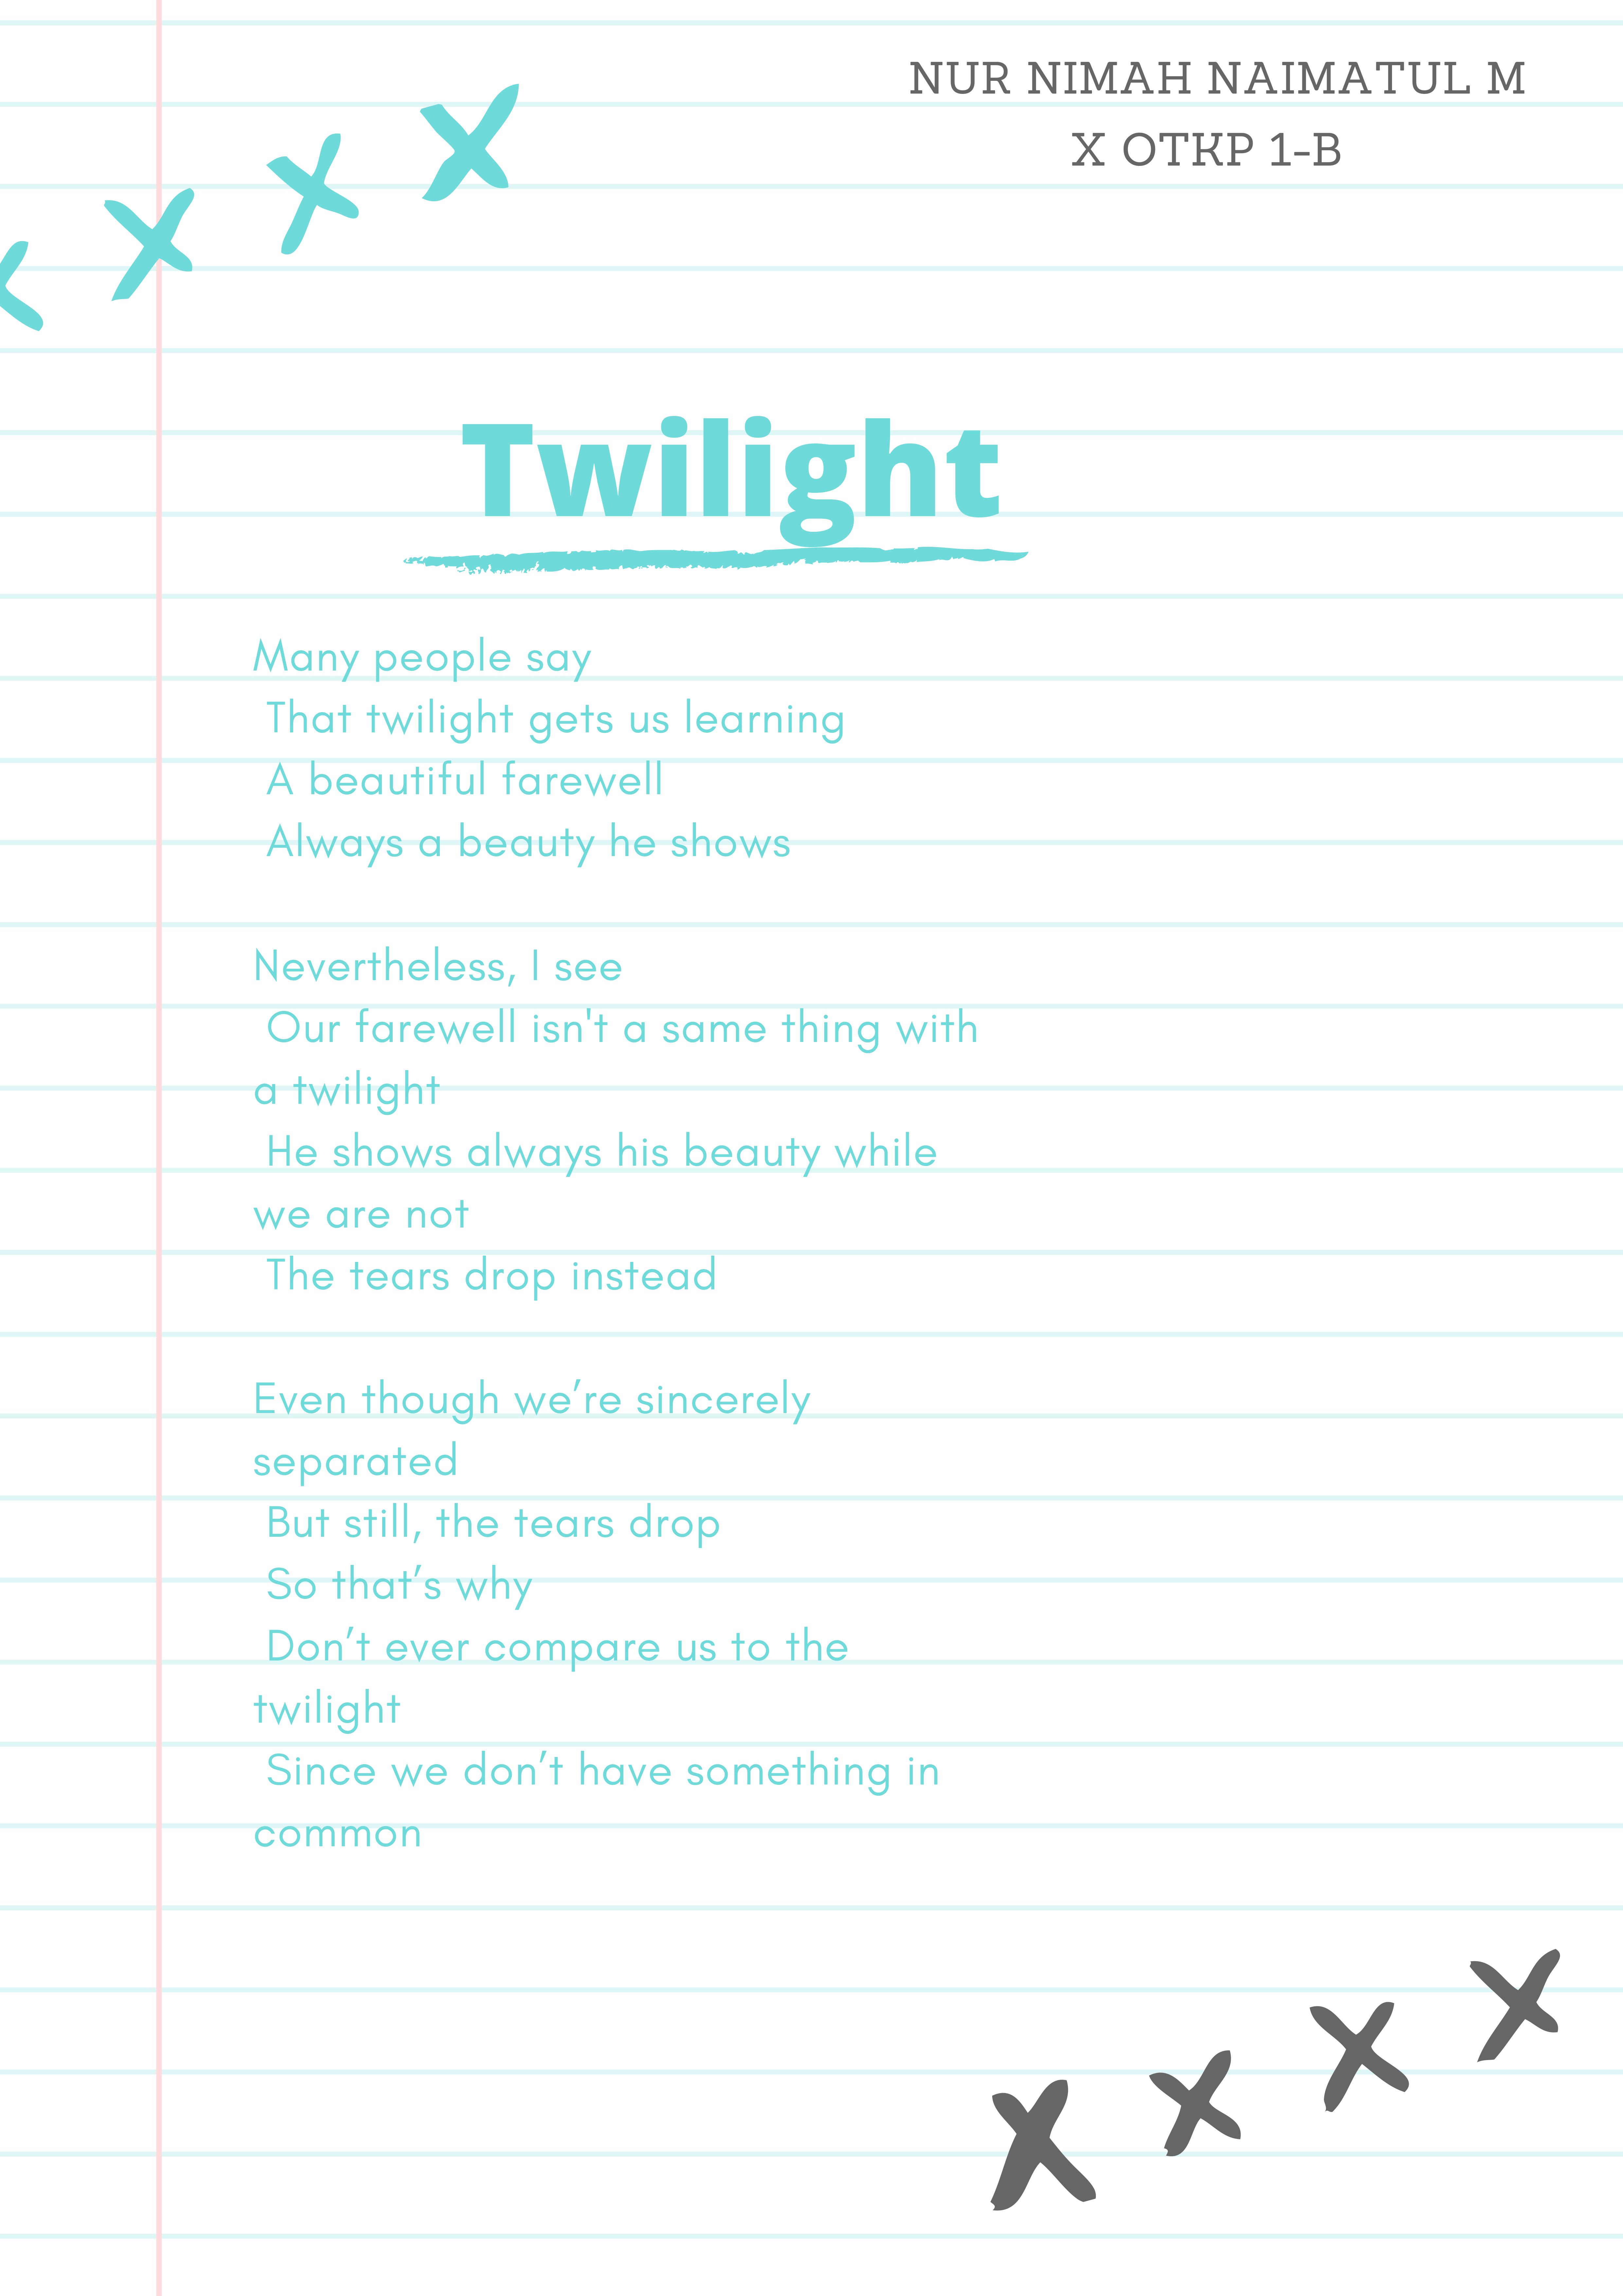 NUR NIMAH NAIMATUL M
X OTKP 1-B
Twilight
Many people say
That twilight gets us learning
A beautiful farewell
Always a beauty he shows
Nevertheless, I see
Our farewell isn't a same thing with
a twilight
He shows always his beauty while
we are not
The tears drop instead
Even though we’re sincerely
separated
But still, the tears drop
So that’s why
Don’t ever compare us to the
twilight
Since we don’t have something in
common